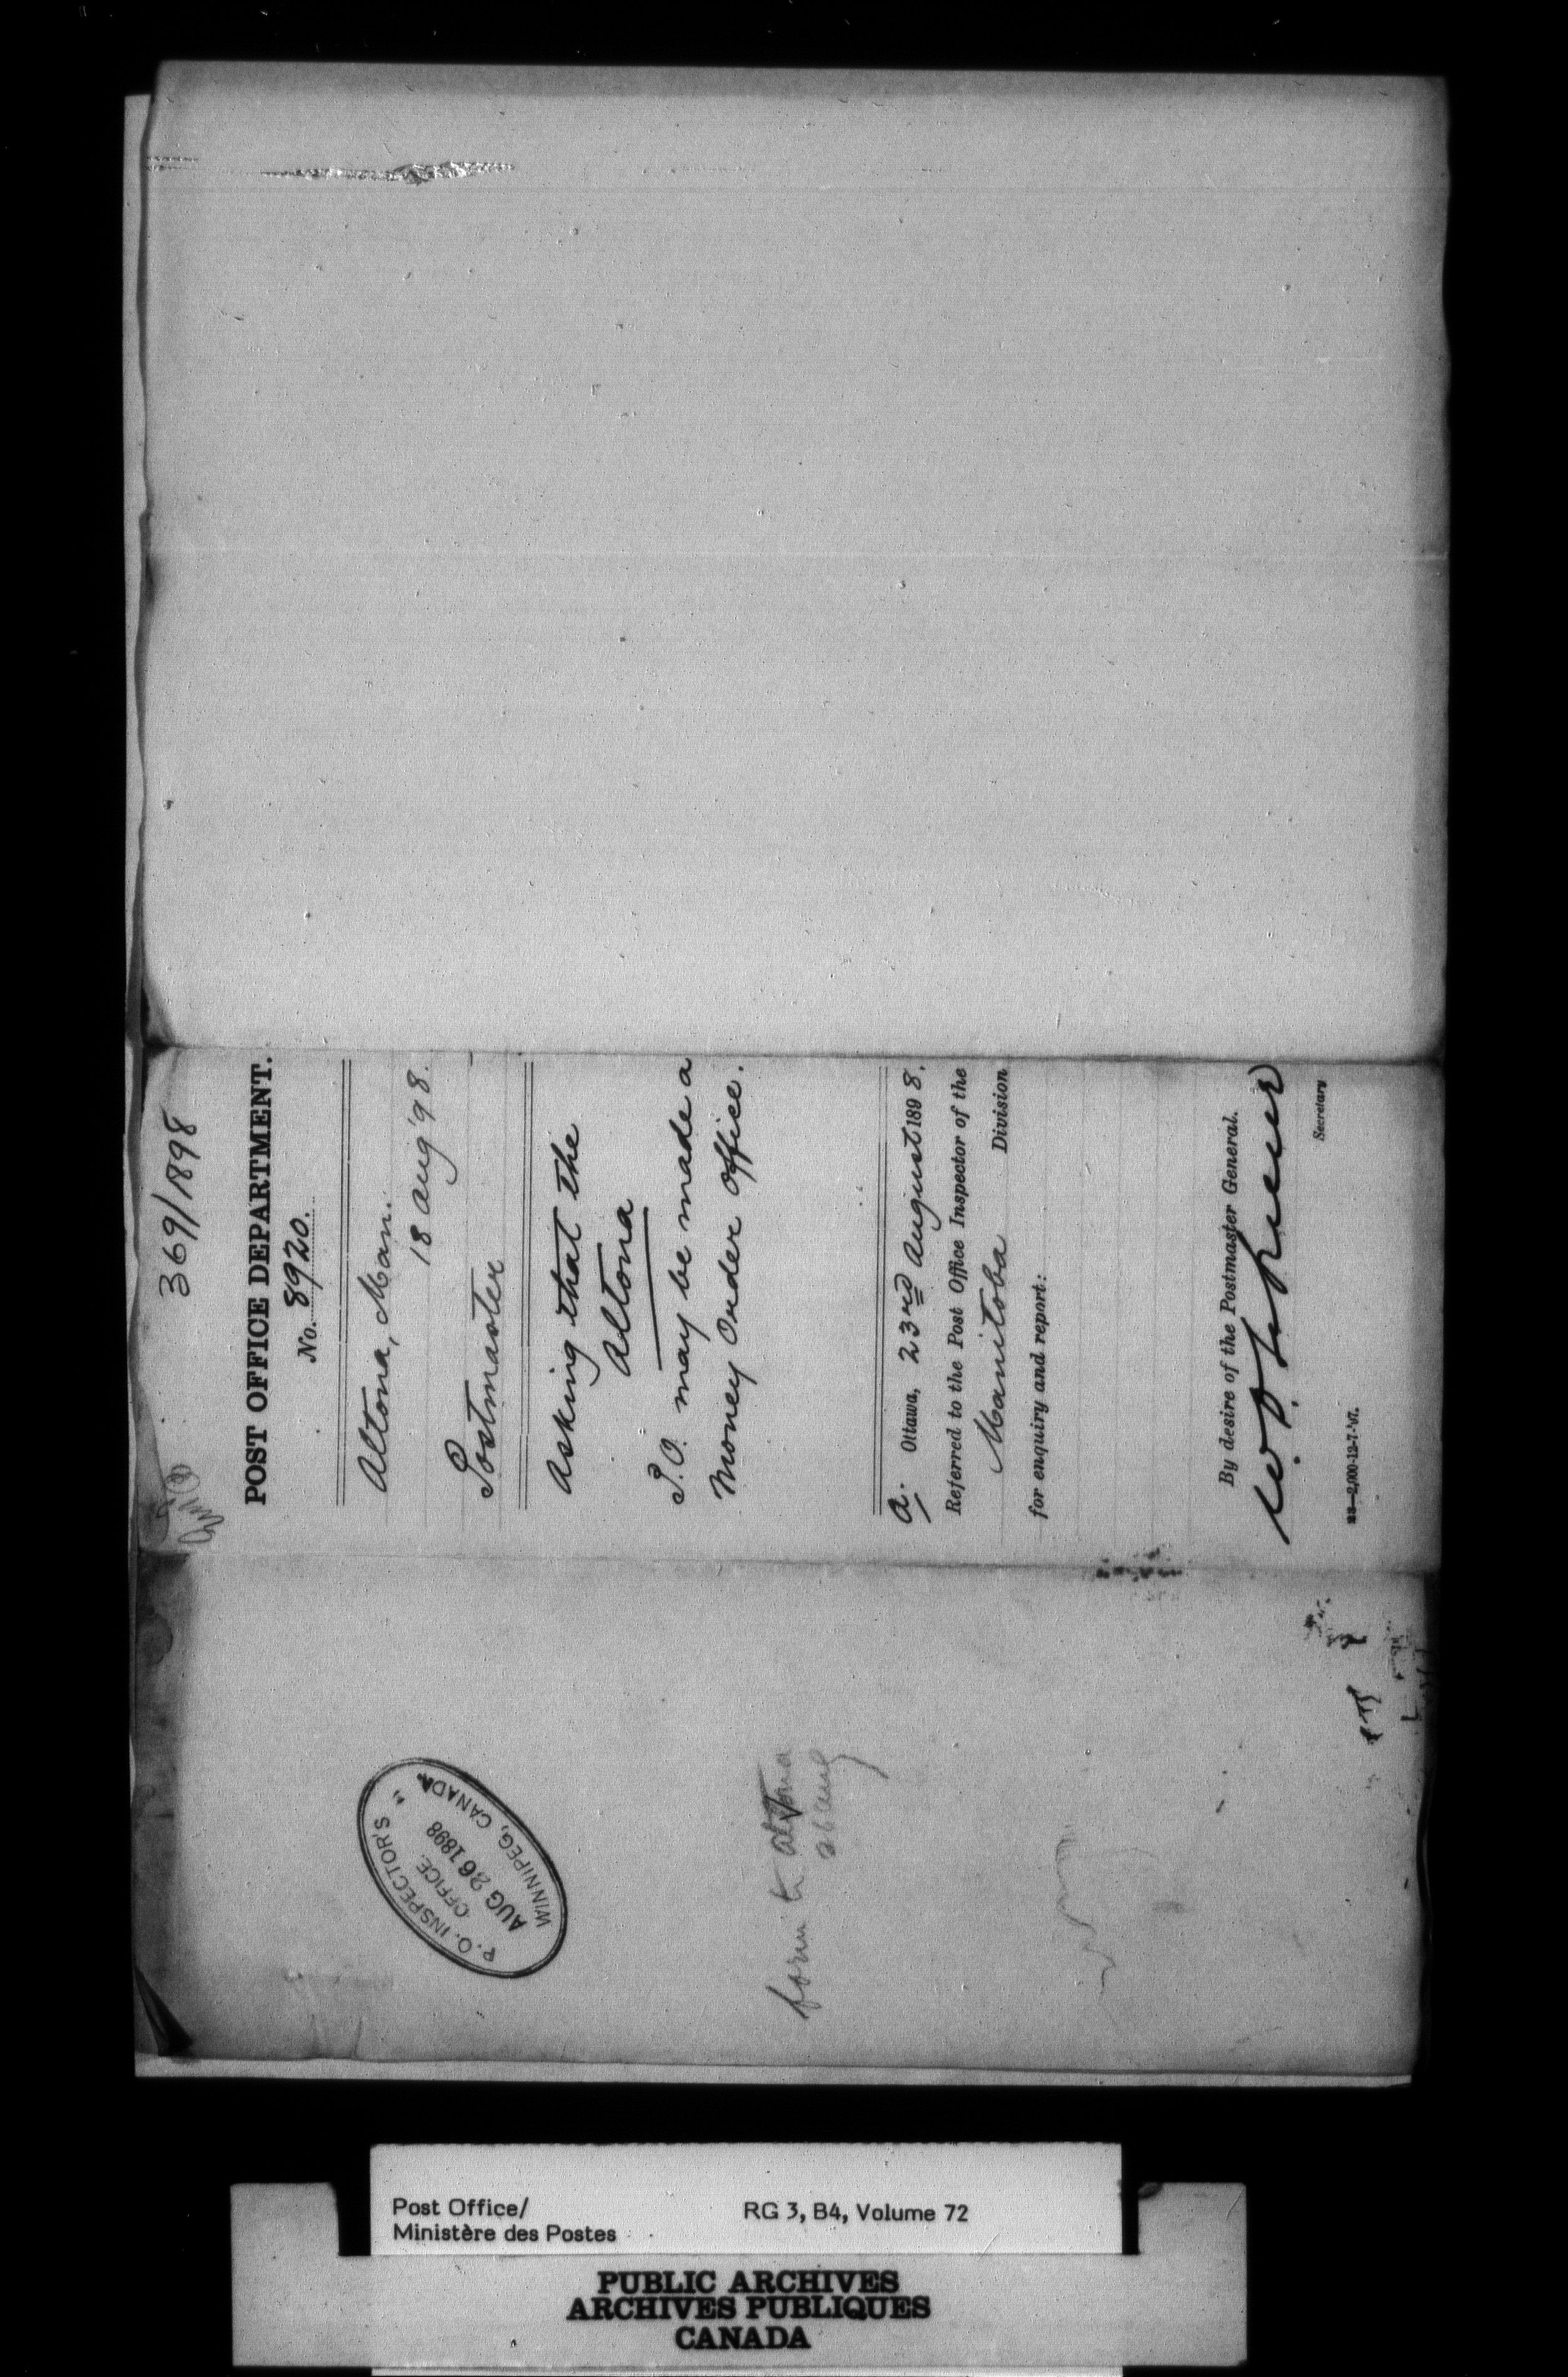 369/1898
POST OFFICE DEPARTMENT.
No. 8920.
Altona, Man.
18 Aug '98.
Postmaster
Asking that the
Altona
P.O. may be made a
Money Order Office.
a. Ottawa, 23rd August 1898.
Referred to the Post Office Inspector of the
Manitoba Division
for enquiry and report:
By desire of the Postmaster General.
Secretary
23—2,000-12-7-'97.
P.O. INSPECTOR'S
OFFICE.
AUG 26 1898
WINNIPEG, CANADA
form to Altona
26 Aug
Post Office/
Ministère des Postes
RG 3, B4, Volume 72
PUBLIC ARCHIVES
ARCHIVES PUBLIQUES
CANADA